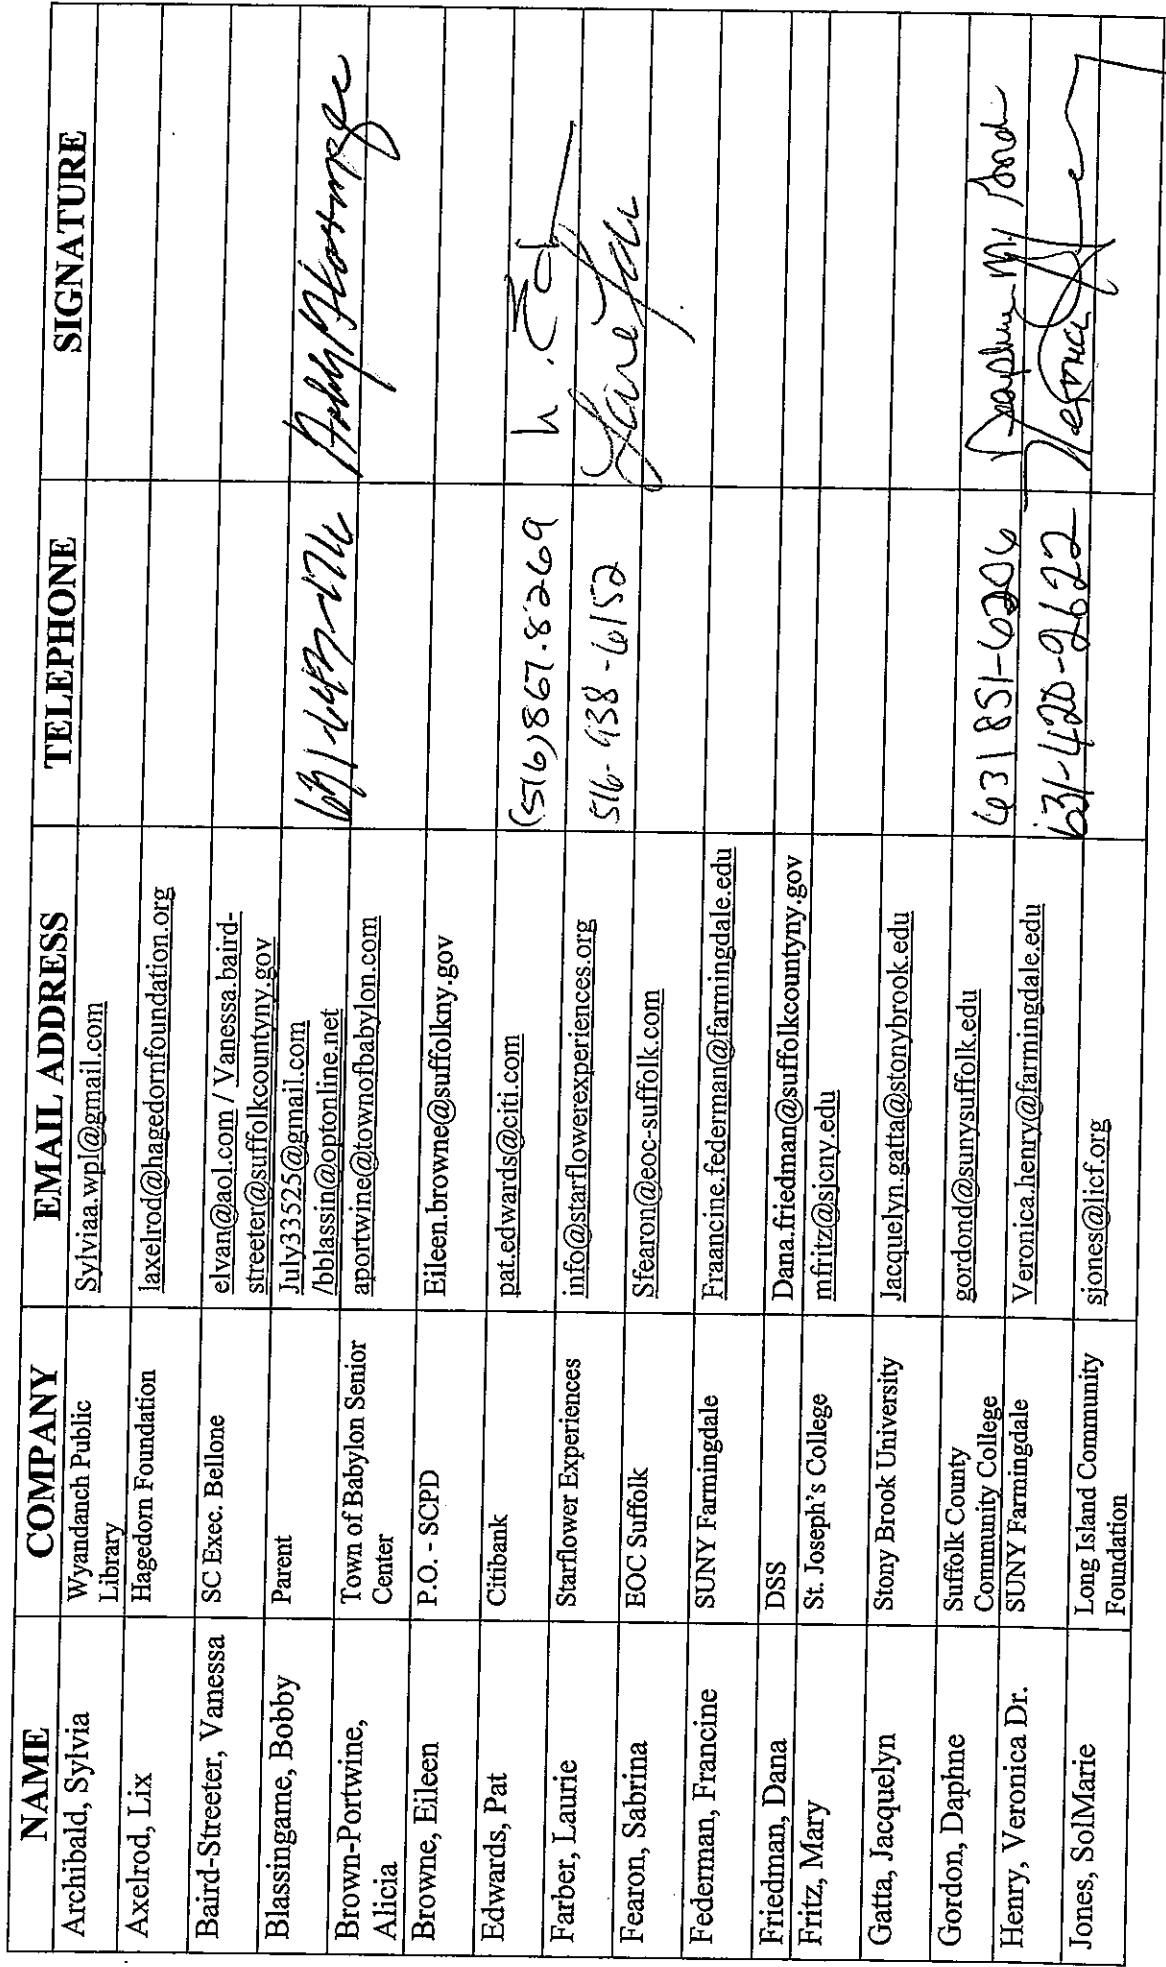 NAME COMPANY EMAIL ADDRESS TELEPHONE SIGNATURE
Archibald, Sylvia Wyandanch Public Sylviaa.wpl@gmail.com
Library
Axelrod, Lix Hagedorn Foundation laxelrod@hagedornfoundation.org
Baird-Streeter, Vanessa SC Exec. Bellone elvan@aol.com / Vanessa.baird-
streeter@suffolkcountyny.gov
Blassingame, Bobby Parent July33525@gmail.com
/bblassin@optonline.net
Brown-Portwine, Town of Babylon Senior aportwine@townofbabylon.com
Alicia Center
Browne, Eileen P.O. - SCPD Eileen.browne@suffolkny.gov
Edwards, Pat Citibank pat.edwards@citi.com (516)867.8269
Farber, Laurie Starflower Experiences info@starflowerexperiences.org 516-938-6152
Fearon, Sabrina EOC Suffolk Sfearon@eoc-suffolk.com
Federman, Francine SUNY Farmingdale Fraancine.federman@farmingdale.edu
Friedman, Dana DSS Dana.friedman@suffolkcountyny.gov
Fritz, Mary St. Joseph's College mfritz@sjcny.edu
Gatta, Jacquelyn Stony Brook University Jacquelyn.gatta@stonybrook.edu
Gordon, Daphne Suffolk County gordond@sunysuffolk.edu 631 851-6206 Daphne M.
Community College
Henry, Veronica Dr. SUNY Farmingdale Veronica.henry@farmingdale.edu 631-420-2622 Veronica
Jones, SolMarie Long Island Community sjones@licf.org
Foundation